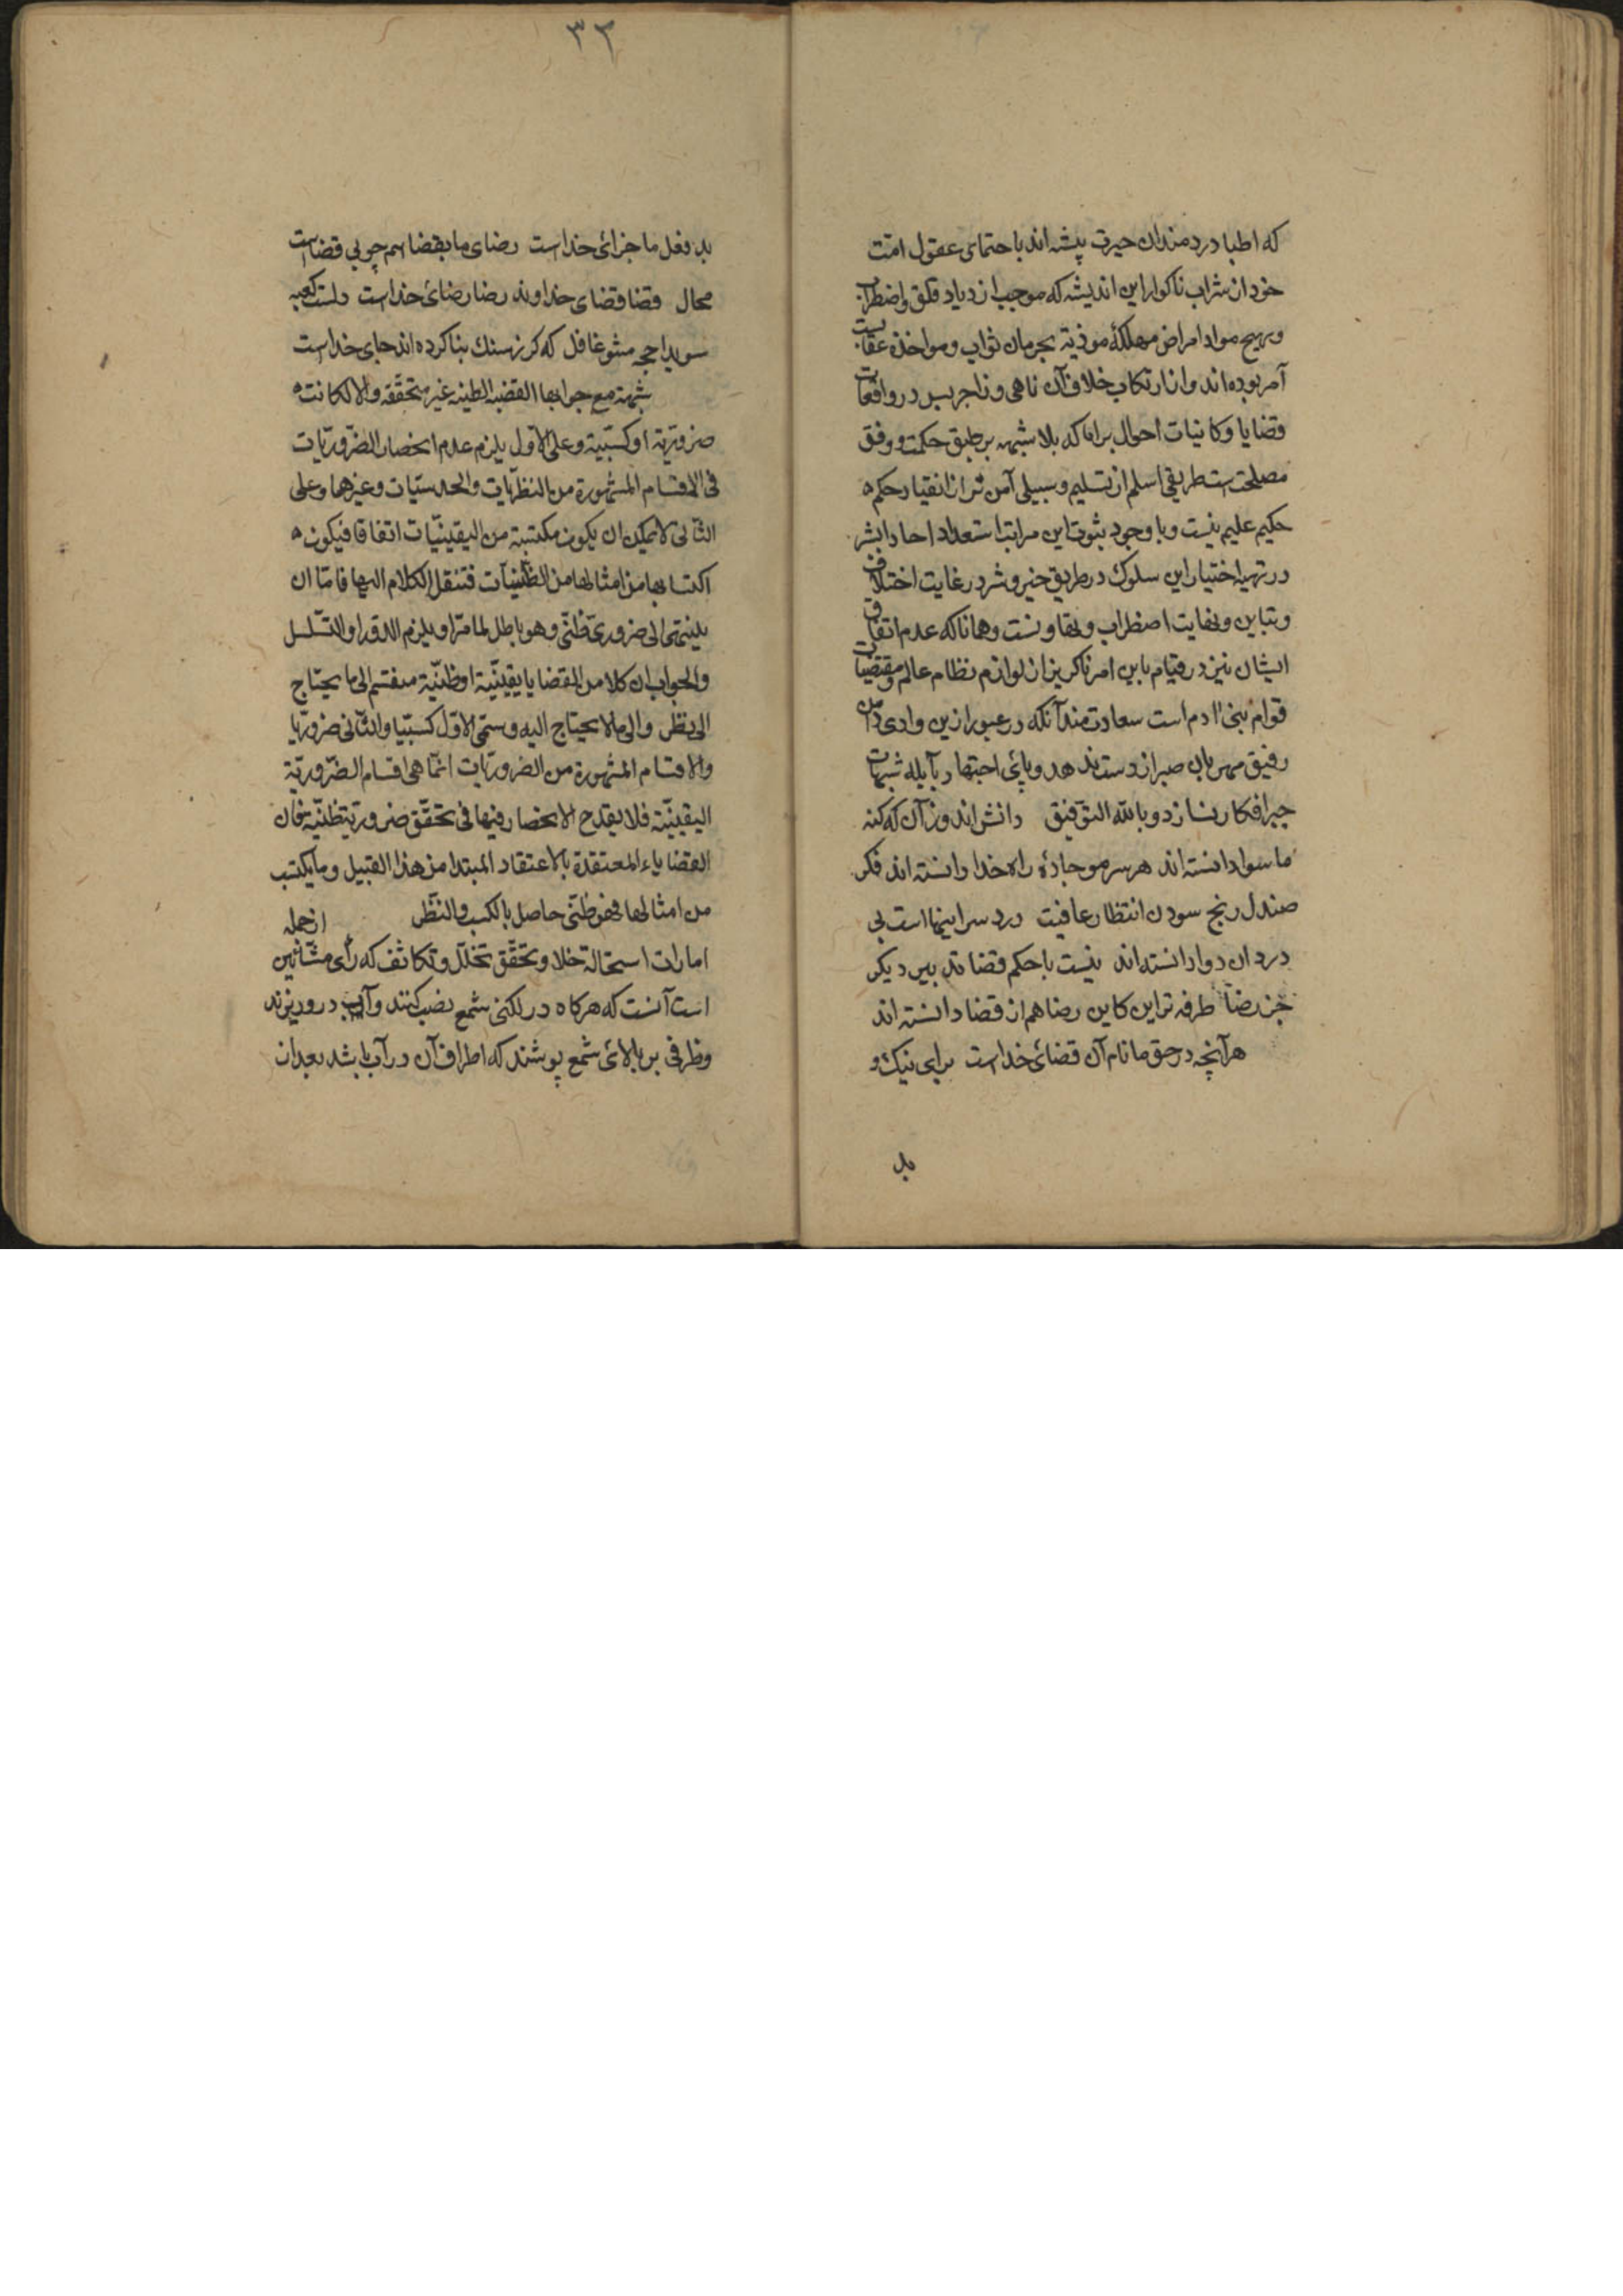 که اطبا دردمندان حیرت پیشه اند باحتمای عقول امّت
خود از شراب ناکوار این اندیشه که موجب ازدیاد قلق واضطراب
و مواد امراض مهلکهٔ موذیه بحرمان ثواب ومواخذهٔ عقابست
آمر بوده اند واز ارتکاب خلاف آن ناهی وزاجر پس در واقعات
قضایا وکاینات احوال برایا که بلا شبهه بر طبق حکمت ووفق
مصلحت است طریقی اسلم از تسلیم وسبیلی آمن تر از انقیاد حکم
حکیم علیم نیست وبا وجود ثبوت این مراتب استعداد احاد بشر
در تهیهٔ اختیار این سلوک در طریق خیر وشر در غایت اختلاف
وتباین ونهایت اضطراب وتفاوتست وهمانا که عدم اتفاق
ایشان نیز در قیام باین امر ناکریز از لوازم نظام عالم ومقتضیات
قوام بنی اادم است سعادتمند آنکه در عبور ازین وادی دامن
رفیق مهربان صبر از دست ندهد وپای اجتهاد بآبله شبهات
افکار نسازد وبالله التوفیق دانش اندوزان که کنه
ماسوا دانسته اند هر سر مو جادهٔ راه خدا دانسته اند فکر
صندل رنج سودن انتظار عافیت درد سر اینها است بی
دردان دوا دانسته اند نیست با حکم قضا تدبیر دیکر
جز رضا طرفه تر این کاین رضا هم از قضا دانسته اند
هرآنچه در حق ما نام آن قضای خداست برای نیک و
بد
٣٣
بد فعل ما جزای خداست رضای ما بقضا هم چو بی قضاست
محال قضا قضای خداوند رضا رضای خداست دلست کعبه
سویدا حجر مشو غافل که کرز سنک بنا کرده اند جای خداست
شبهة مع جوابها القضیه الظنیه غیر متحققه والا لکانت
ضروریّة او کسبیّة وعلی الاوّل یلزم عدم انحصار الضّروریّات
فی الاقسام المشهورة من النظریات والحدسیّات وغیرهما وعلی
الثانی لا یمکن ان یکون مکتسبة من الیقینیّات اتفاقا فیکون
اکتسابها من امثالها من الظّنّیات فتنقل الکلام الیها فامّا ان
ینتهی الی ضروریّ ظنّی وهو باطل لما مرّ او یلزم الدّور او التسلسل
والجواب ان کلا من القضایا یقینیّة او ظنّیّة منقسم الی ما یحتاج
الی نظر والی ما لا یحتاج الیه وسمّی الاوّل کسبیّا والثّانی ضروریّا
والاقسام المشهورة من الضروریّات انّما هی اقسام الضّروریّة
الیقینیّة فلا یقدح الانحصار فیها فی تحقّق ضروریّة ظنیّة فان
القضایاء المعتقدة بالاعتقاد المبتدا من هذا القبیل وما یکتسب
من امثالها فهو ظنّی حاصل بالکسب والنّظر از جمله
امارات استحالة خلا وتحقّق تخلّل وتکاثف که رأی مشّائین
است آنست که هرکاه در لکنی شمع نصب کنند وآب درو ریزند
وظرفی بر بالای شمع پوشند که اطراف آن در آب باشد بعد از